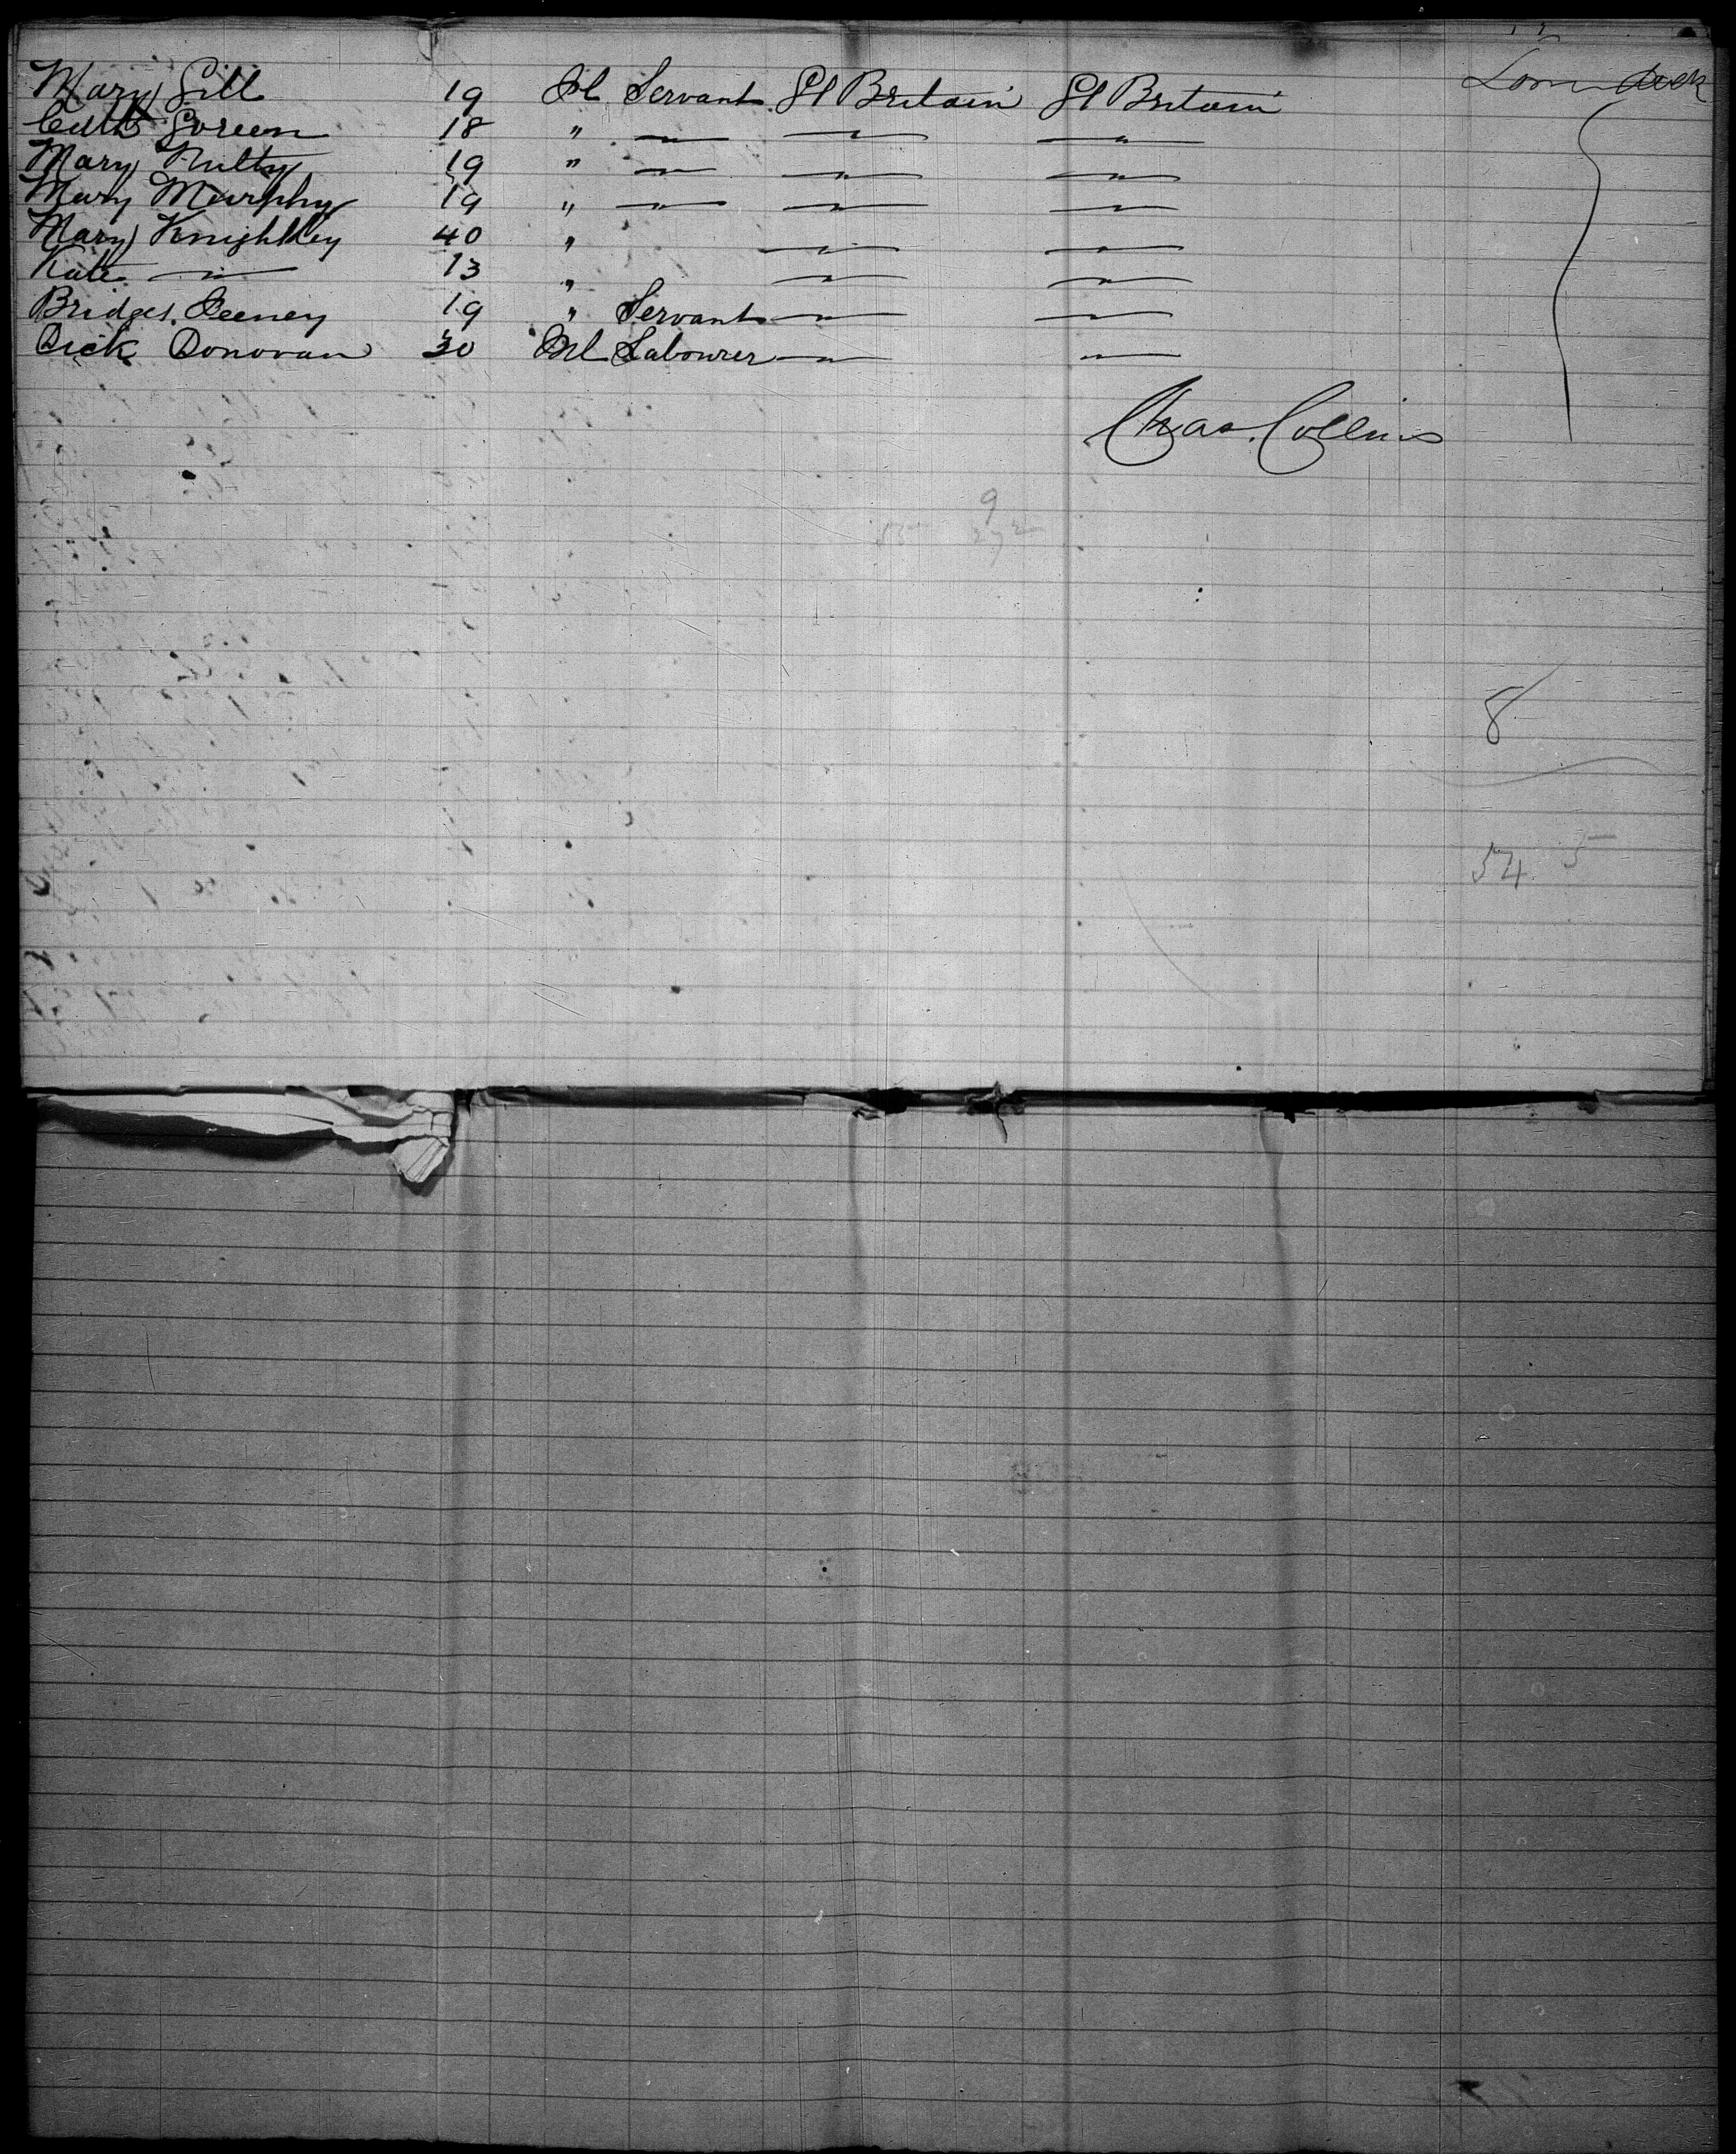 Mary Gill 19 Fl Servant Gt Britain Gt Britain Lower deck
18 " — " — — " — — " —
Mary Nulty 19 " — " — — " — — " —
Mary Murphy 19 " — " — — " — — " —
Mary Knightley 40 " — " — — " —
Kate — " — 13 " — " — — " —
Bridget Feeney 19 " Servant — " — — " —
Dick Donovan 30 Ml Labourer — " — — " —
Chas. Collins
9
272
8
54 5